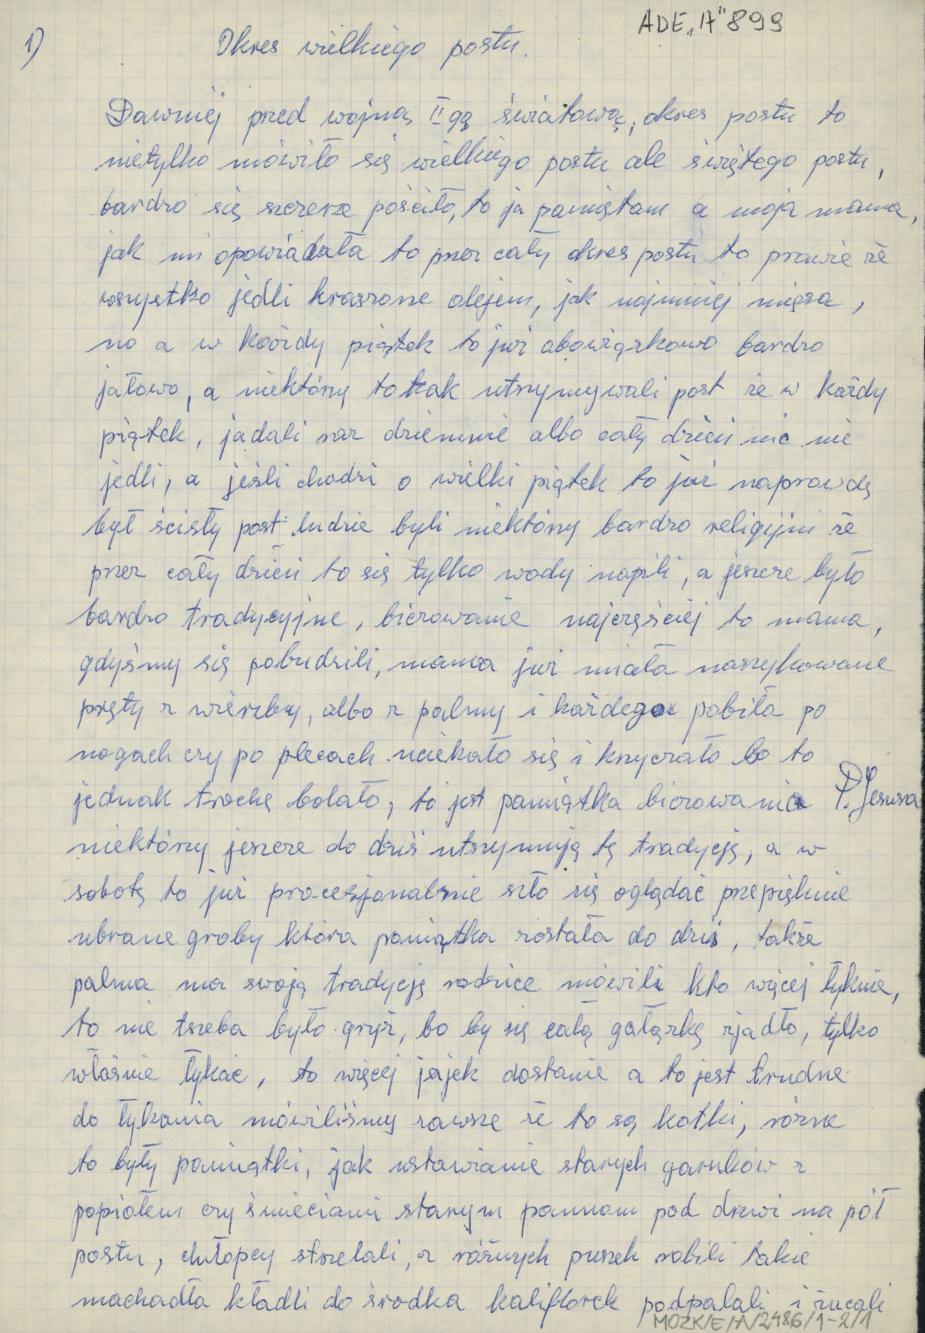 ADE „A" 899
1) Okres wielkiego postu.
Dawniej pred wojną II gą światową, okres postu to
nietylko mówiło się wielkiego postu ale świętego postu,
bardzo się szczerze pościło, to ja pamiętam a moja mama,
jak mi opowiadała to przez cały okres postu to prawie że
wszystko jedli kraszone olejem, jak najmniej mięsa,
no a w każdy piątek to już obowiązkowo bardzo
jałowo, a niektórzy to tak utrzymywali post że w każdy
piątek, jadali raz dziennie albo cały dzień nic nie
jedli, a jeśli chodzi o wielki piątek to już naprawdę
był ścisły post ludzie byli niektórzy bardzo religijni że
przez cały dzień to się tylko wody napili, a jeszcze było
bardzo tradycyjne, biczowanie najczęściej to mama,
gdyśmy się pobudzili, mama już miała naszykowane
pręty z wierzby, albo z palmy i każdego pobiła po
nogach czy po plecach uciekało się i krzyczało bo to
jednak trochę bolało, to jest pamiątka biczowania P. Jezusa
niektórzy jeszcze do dziś utrzymują tę tradycję, a w
sobotę to już procesjonalnie szło się oglądać przepięknie
ubrane groby która pamiątka została do dziś, także
palma ma swoją tradycję rodzice mówili kto więcej łyknie,
to nie trzeba było gryź, bo by się całą gałązkę zjadło, tylko
właśnie łykać, to więcej jajek dostanie a to jest trudne
do łykania mówiliśmy zawsze że to są kotki, różne
to były pamiątki, jak ustawianie starych garnków z
popiołem czy śmieciami starym pannom pod drzwi na pół
postu, chłopcy strzelali, z różnych puszek robili takie
machadła kładli do środka kaliflorek podpalali i rzucali
MOZK/E/A/2486/1-2/1